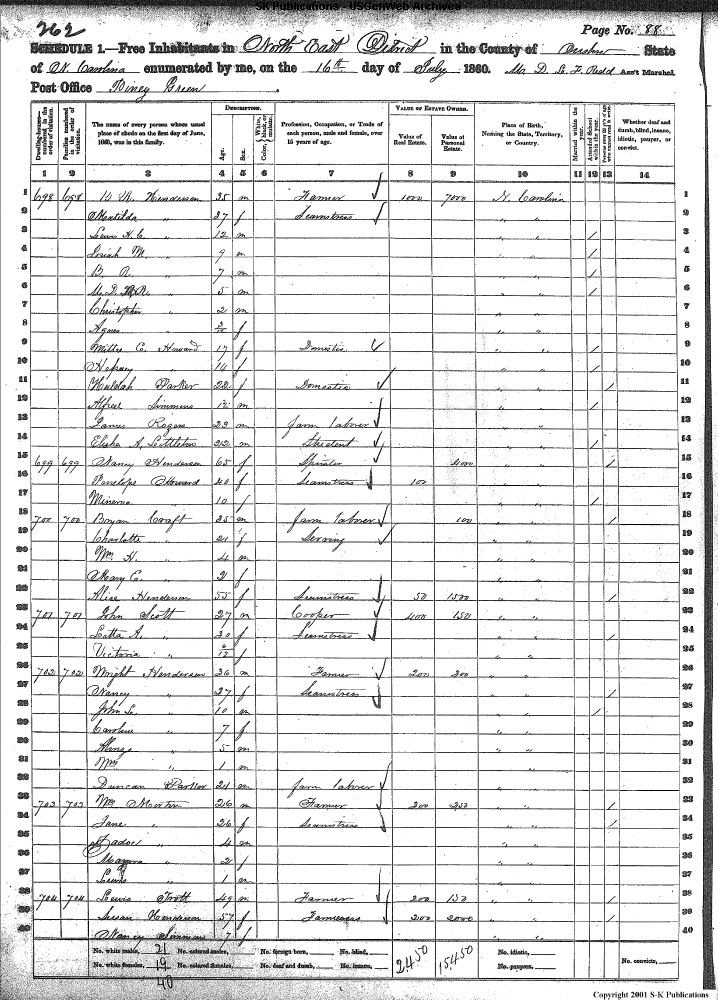 SK Publications - USGenWeb Archives
262
Page No. 88
SCHEDULE 1.—Free Inhabitants in North East District in the County of State
of N. Carolina enumerated by me, on the 16th day of July 1860. Ass't Marshal.
Post Office Piney Green
DESCRIPTION.
VALUE OF ESTATE OWNED.
Dwelling-houses—numbered in the order of visitation.
Families numbered in the order of visitation.
The name of every person whose usual place of abode on the first day of June, 1860, was in this family.
Age.
Sex.
Color, White, black, or mulatto.
Profession, Occupation, or Trade of each person, male and female, over 15 years of age.
Value of Real Estate.
Value of Personal Estate.
Place of Birth, Naming the State, Territory, or Country.
Married within the year.
Attended School within the year.
Whether deaf and dumb, blind, insane, idiotic, pauper, or convict.
1 2 3 4 5 6 7 8 9 10 11 12 13 14
1 698 698 Henderson 35 m Farmer 1000 7000 N. Carolina 1
2 Matilda " 27 f Seamstress 2
3 Lewis H. C. " 12 m / 3
4 Josiah M. " 9 m / 4
5 B. R. " 7 m / 5
6 " 5 m / 6
7 Christopher " 2 m 7
8 Agnes " f 8
9 Mittey C. Howard 17 f Domestic / 9
10 Hepsey " 14 f / 10
11 Huldah Parker 22 f Domestic / 11
12 Alfred Simmons 12 m / 12
13 James Rogers 22 m farm laborer 13
14 Elisha A. Littleton 22 m Student / 14
15 699 699 Nancy Henderson 65 f Spinster 4000 / 15
16 Penelope Howard 40 f Seamstress 100 16
17 Minerva " 10 f / 17
18 700 700 Bryan Craft 35 m farm laborer 100 / 18
19 Charlotte " 21 f Serving 19
20 Wm H. " 4 m 20
21 Mary E. " 2 f 21
22 Alice Henderson 55 f Seamstress 50 1500 / 22
23 701 701 John Scott 27 m Cooper 400 150 23
24 Litta A. " 30 f Seamstress / 24
25 Victoria " f 25
26 702 702 Wright Henderson 36 m Farmer 200 300 26
27 Nancy " 27 f Seamstress / 27
28 John L. " 10 m / 28
29 Caroline " 7 f 29
30 " 5 m 30
31 Wm " 1 m 31
32 Duncan Parker 21 m farm laborer 32
33 703 703 Wm Morton 26 m Farmer 200 250 / 33
34 Jane " 26 f Seamstress / 34
35 " 4 m 35
36 " 2 f 36
37 Lewis " 1 m 37
38 704 704 Lewis Trott 49 m Farmer 200 150 / 38
39 Susan Henderson 57 f 200 2000 / 39
40 Nancy Simmons 7 f 40
No. white males, 21 No. colored males, No. foreign born, No. blind, 2450 15450 No. idiotic, No. convicts,
No. white females, 19 No. colored females, No. deaf and dumb, No. insane, No. paupers,
40
Copyright 2001 S-K Publications